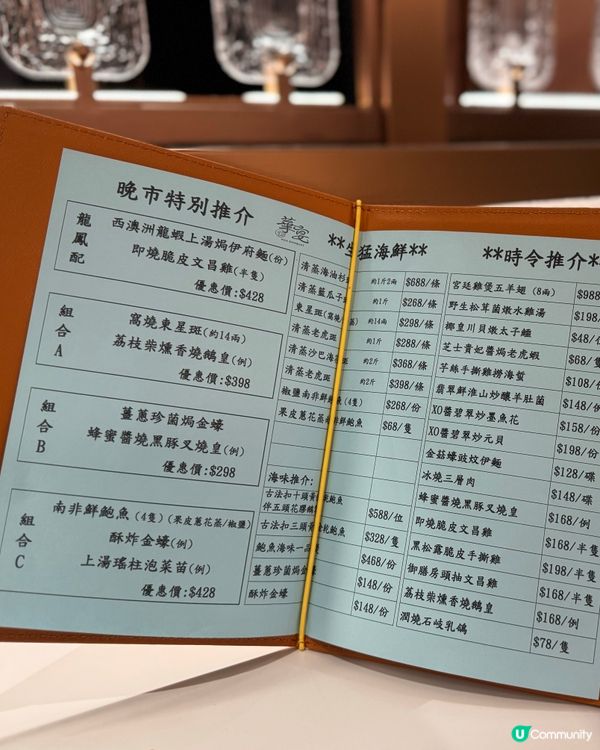 晚市特別推介
龍鳳配
西澳洲龍蝦上湯焗伊府麵(份)
即燒脆皮文昌雞(半隻)
優惠價:$428
組合A
窩燒東星斑(約14兩)
荔枝柴燻香燒鵝皇(例)
優惠價:$398
組合B
薑蔥珍菌焗金蠔
蜂蜜醬燒黑豚叉燒皇(例)
優惠價:$298
組合C
南非鮮鮑魚(4隻)(果皮蔥花蒸/椒鹽)
酥炸金蠔(例)
上湯瑤柱泡菜苗(例)
優惠價:$428
華宴
猛海鮮**
清蒸海油杉 約1斤2兩 $688/條
清蒸藍瓜子 約1斤 $268/條
東星斑(窩燒 約14兩 $298/條
清蒸老虎斑 約1斤 $288/條
清蒸沙巴海 約2斤 $368/條
清蒸老虎斑 約2斤 $398/條
椒鹽南非鮮鮑魚(4隻) $268/份
果皮蔥花蒸南非鮮鮑魚 $68/隻
海味推介:
古法扣十頭 鮑魚
伴五頭花膠 $588/位
古法扣三頭 鮑魚 $328/隻
鮑魚海味一品 $468/份
薑蔥珍菌焗金蠔 $148/份
酥炸金蠔 $148/份
**時令推介**
宮廷雞煲五羊翅(8兩) $988
野生松茸菌燉水雞湯 $198/
椰皇川貝燉太子䱽 $48/
芝士貴妃醬焗老虎蝦 $68/
芋絲手撕雞撈海蜇 $108/
翡翠鮮淮山炒釀羊肚菌 $148/例
XO醬碧翠炒墨魚花 $158/份
XO醬碧翠炒元貝 $198/份
金菇蠔豉炆伊麵 $128/碟
冰燒三層肉 $148/碟
蜂蜜醬燒黑豚叉燒皇 $168/例
即燒脆皮文昌雞 $168/半隻
黑松露脆皮手撕雞 $198/半隻
御膳房頭抽文昌雞 $168/半隻
荔枝柴燻香燒鵝皇 $168/例
潤燒石岐乳鴿 $78/隻
U Community